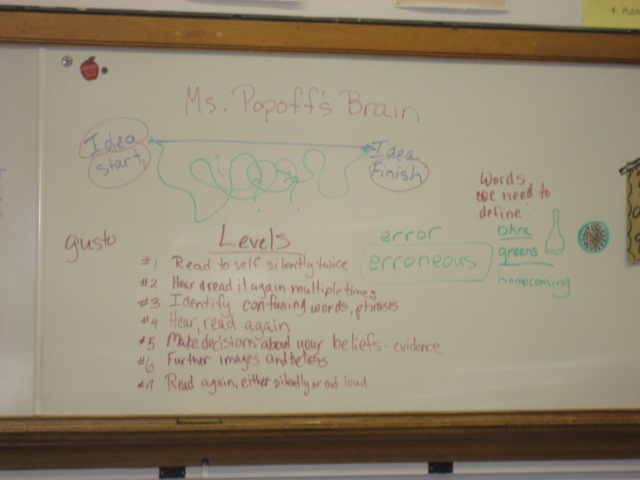 4.
Ms. Popoff's Brain
Idea
start
Idea
Finish
gusto
Levels
#1 Read to self silently twice
#2 Hear & read it again multiple times
#3 Identify confusing words, phrases
#4 Hear, read again
#5 Make decisions about your beliefs - evidence
#6 Further images and beliefs
#7 Read again, either silently or out loud
error
erroneous
Words
we need to
define:
okra
greens
homecoming